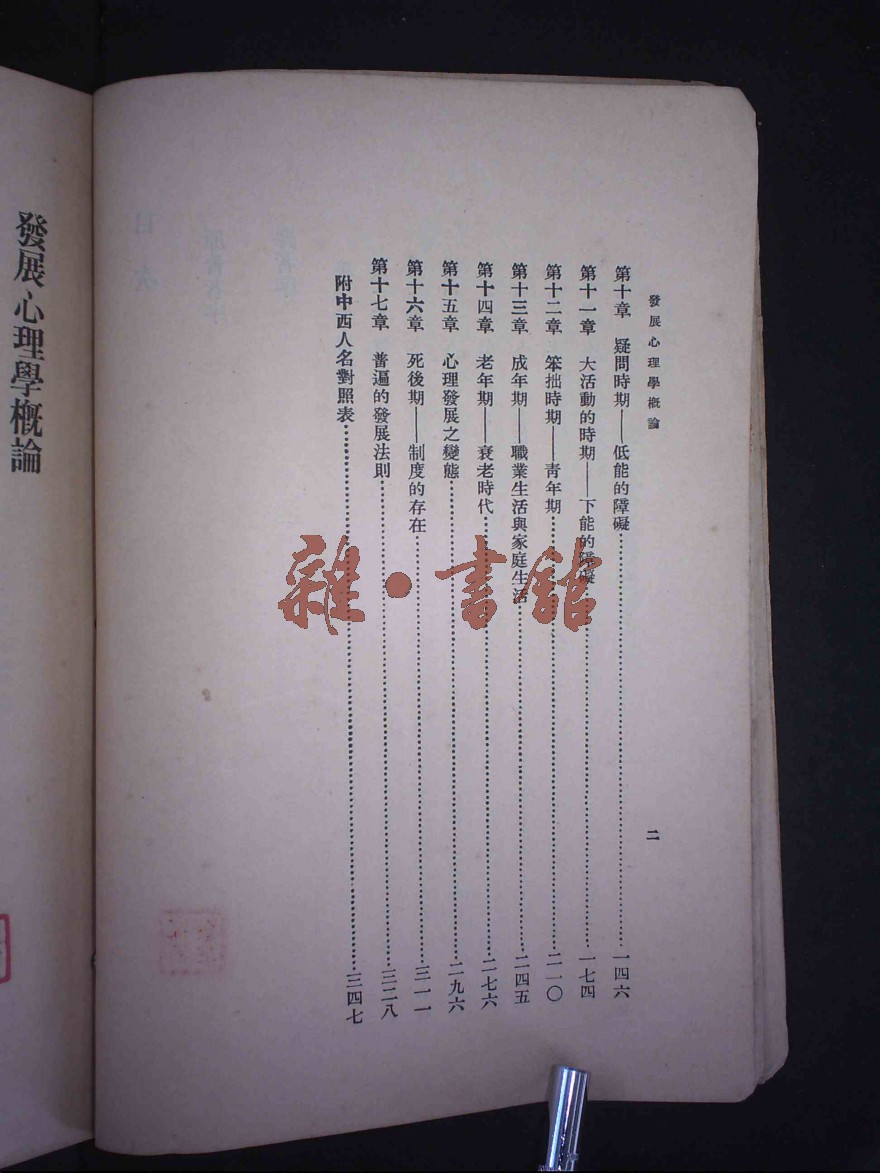 發展心理學概論
第十章　疑問時期——低能的障礙………一四六
第十一章　大活動的時期——下能的障礙………一七四
第十二章　笨拙時期——青年期………二一〇
第十三章　成年期——職業生活與家庭生活………二四五
第十四章　老年期——衰老時代………二七六
第十五章　心理發展之變態………二九六
第十六章　死後期——制度的存在………三一一
第十七章　普遍的發展法則………三二八
附中西人名對照表………三四七
二
發展心理學概論
雜·書館